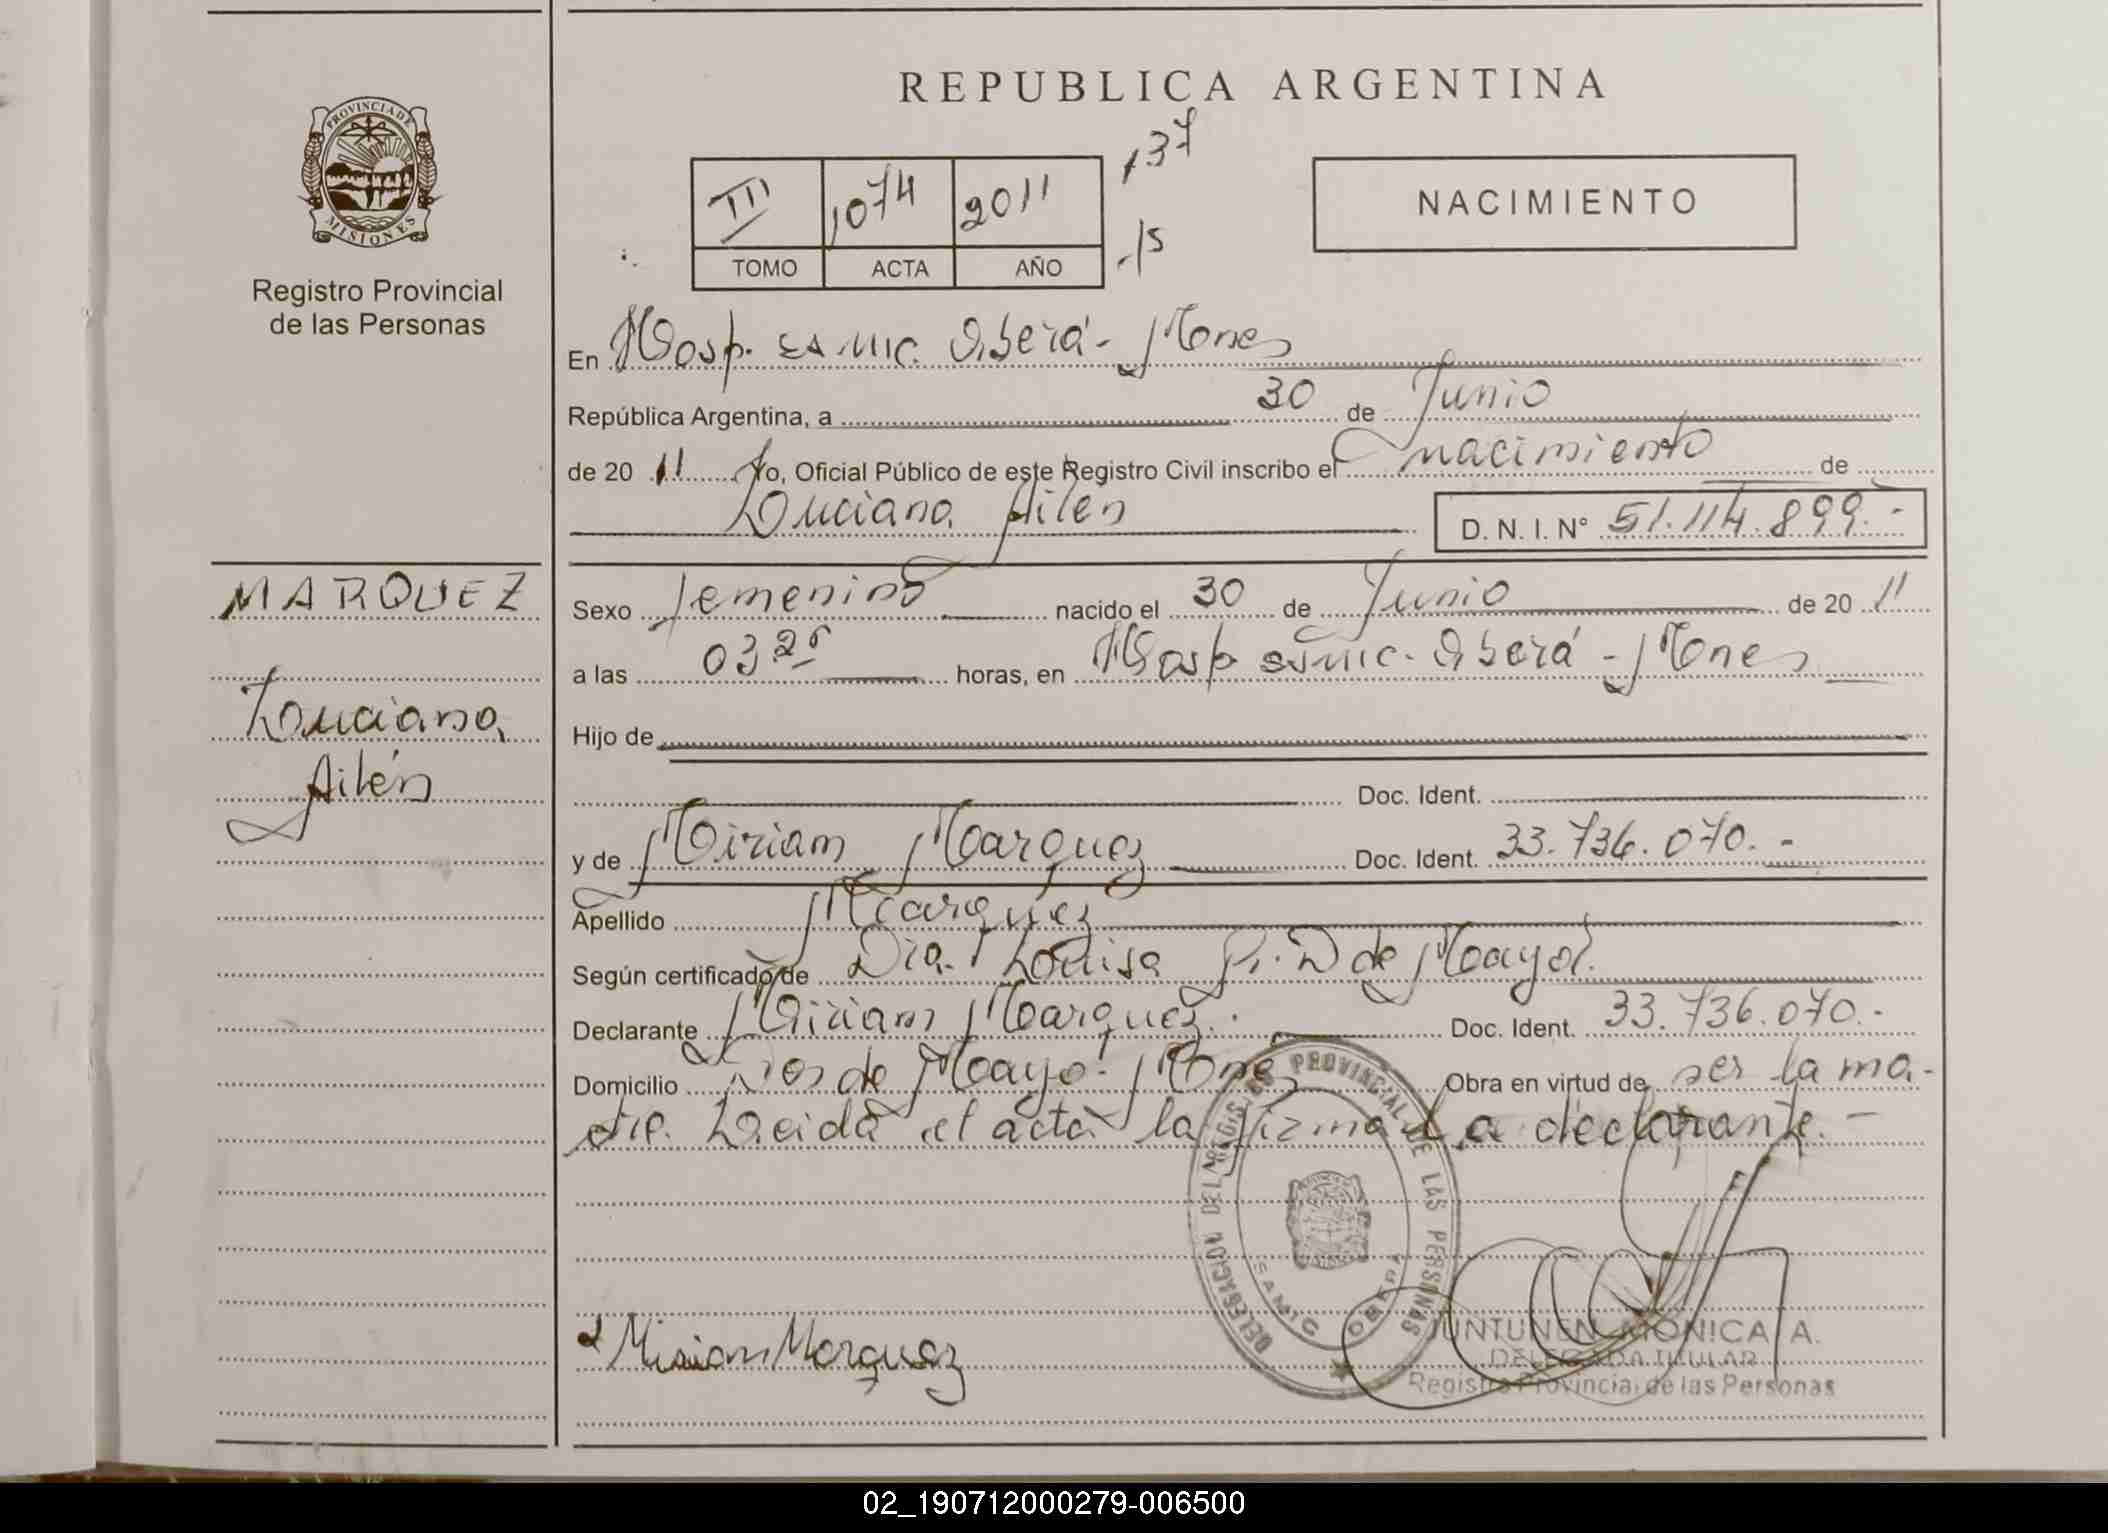 REPUBLICA ARGENTINA
PROVINCIA DE
MISIONES
Registro Provincial
de las Personas
III 1074 2011
TOMO ACTA AÑO
137
15
NACIMIENTO
En Hosp. SAMIC. Oberá - Mnes
República Argentina, a 30 de Junio
de 20 11 Yo, Oficial Público de este Registro Civil inscribo el nacimiento de
Luciana Ailén D. N. I. N° 51.114.899.-
MARQUEZ
Luciana
Ailén
Sexo femenino nacido el 30 de Junio de 20 11
a las 03 25 horas, en Hosp SAMIC. Oberá - Mnes
Hijo de
Doc. Ident.
y de Miriam Marquez Doc. Ident. 33.736.070.-
Apellido Marquez
Según certificado de Dra. Luisa de Mayol.
Declarante Miriam Marquez. Doc. Ident. 33.736.070.-
Domicilio Dos de Mayo. Mnes Obra en virtud de ser la ma-
dre. Leida el acta la firma la declarante.-
DELEGACION DEL REGISTRO PROVINCIAL DE LAS PERSONAS
SAMIC OBERA
Miriam Marquez
JUNTUNEN MONICA A.
DELEGADA TITULAR
Registro Provincial de las Personas
02_190712000279-006500